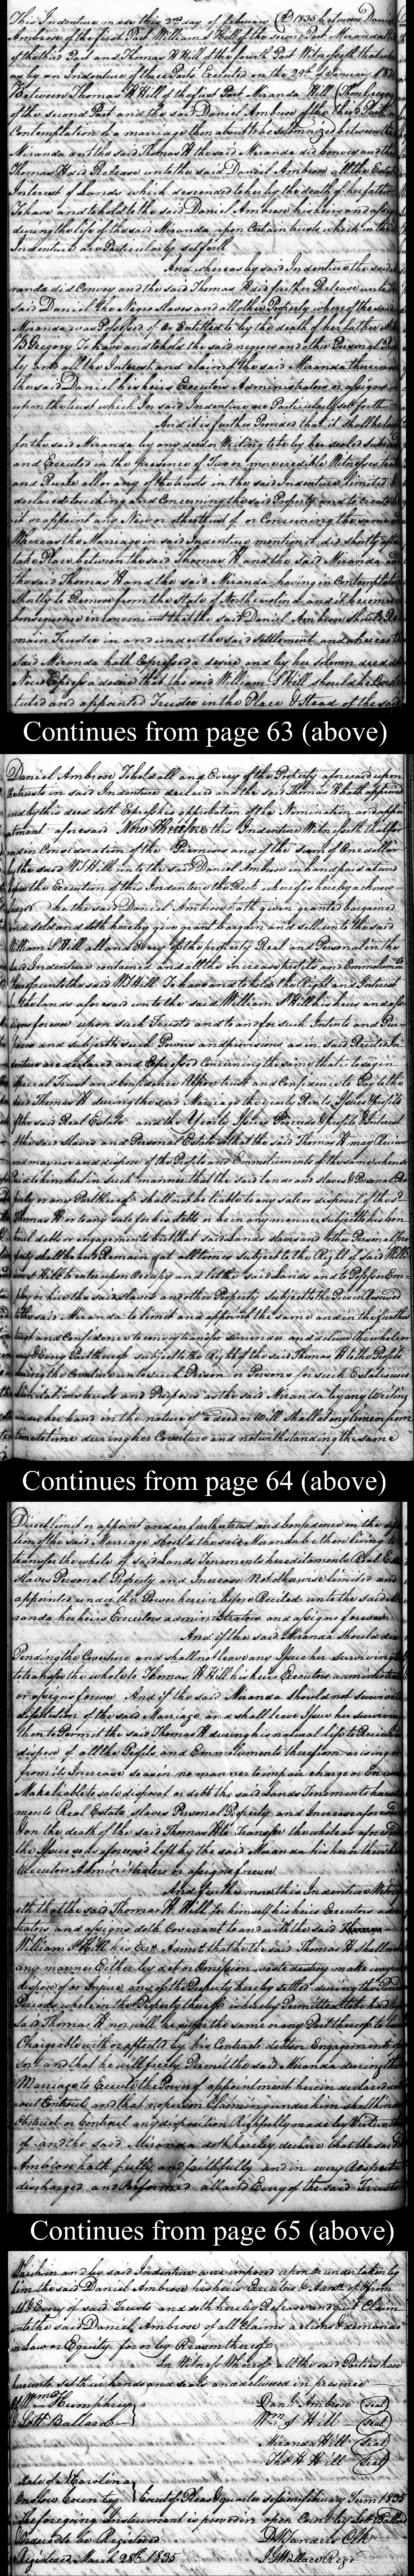 This Indenture made this 2nd day of February AD 1835 between Daniel
Ambrose of the first Part William S Hill of the second Part Miranda H
of the third Part and Thomas H Hill of the fourth Part Witnesseth that where
as by an Indenture of three Parts Executed on the 29th of January 183
Between Thomas H Hill of the first Part Miranda Hill Then Gregory
of the second Part and the said Daniel Ambrose of the Third Part
Contemplation of a marriage then about to be solemnized between the
Miranda and the said Thomas H the said Miranda did convey and the
Thomas H did Release unto the said Daniel Ambrose all the Estate
Interest of Lands which descended to her by the death of her father
To have and to hold to the said Daniel Ambrose his heirs and assigns
during the life of the said Miranda upon Certain trusts which in the
Indenture are Particularly set forth
And whereas by said Indenture the said
randa did Convey and the said Thomas H did further Release unto
said Daniel the Negro Slaves and all other Property whereof the said
Miranda was Possessed of or Entitled to by the death of her father
B Gregory To have and to hold the said negroes and other Personal Pro
ty and all the Interest and claim of the said Miranda therein
the said Daniel his heirs Executors Administrators or assigns
upon the trust which In said Indenture are Particularly set forth
And it is further Provided that it shall be law
for the said Miranda by any deed or Writing to be by her sealed
and Executed in the presence of Two or more credible Witnesses
all or any of the trusts in the said Indenture limited
declared touching and Concerning the said Property and to create
it or appoint any New or other trust of or Concerning the same
Whereas the Marriage in said Indenture mentioned did shortly after
take Place between the said Thomas H and the said Miranda and
the said Thomas H and the said Miranda having in Contemplation
shortly to Remove from the State of North Carolina and it becomes
consequence inconvenient that the said Daniel Ambrose should Re
main Trustee in and under the said settlement and whereas
said Miranda hath Expressed a desire and by her solemn deed
Now Express a desire that the said William S Hill should be Consti
tuted and appointed Trustee in the Place & Stead of the said
Continues from page 63 (above)
Daniel Ambrose To hold all and Every of the Property aforesaid upon
the trusts in said Indenture declared and the said Thomas H hath approved
and by this deed doth Express his approbation of the Nomination and appo
intment aforesaid Now Therefore this Indenture Witnesseth that for
and in Consideration of the Premises and of the sum of One dollar
by the said W S Hill unto the said Daniel Ambrose in hand paid at and
before the Execution of this Indenture the Rect. whereof is hereby acknow
ledged he the said Daniel Ambrose hath given granted bargained
and sold and doth hereby give grant bargain and sell unto the said
William S Hill all and Every of the property Real and Personal in the
said Indenture contained and all the increase profits and Emmoluments
thereof unto the said W S Hill To have and to hold the Right and Interest
in the lands aforesaid unto the said William S Hill his heirs and ass
igns forever upon such Trusts and to and for such Intents and Pur
poses and subject to such Powers and provisions as in said Recited In
denture are declared and Expressed Concerning the same that is to say in
special Trust and Confidence Upon trust and Confidence to Pay to the
said Thomas H during the said Marriage the yearly Rents Issues & Profits
of the said Real Estate and the Yearly Issues Proceeds & Profits & Interest
of the said Slaves and Personal Estate so that the said Thomas H may Receive
and may use and dispose of the Profits and Emmoluments of the same whereof
said to him but in such manner that the said lands and slaves & Personal Pro
perty or any Part thereof shall not be liable to any sale or disposal of the sd
Thomas H or to any sale for his debts or be in any manner subject to his con
tracts debts or engagements but that said Lands slaves and other Personal pro
perty shall be and Remain at all times subject to the Right of said Will
iam S Hill to enter upon Occupy and let the said Lands and to Possess Em
ploy or hire the said slaves and other Property subject to the Power Reserved
to the said Miranda to limit and appoint the same and in the further
trust and Confidence to convey transfer surrender and deliver the whole or
any & Every Part thereof subject to the Right of the said Thomas H to the Profits
during the Coverture unto such Person or Persons for such Estates uses
limitations trusts and Purposes as the said Miranda by any Writing
under her hand in the nature of a deed or Will shall at any time or from
time to time during her Coverture and notwithstanding the same
Continues from page 64 (above)
Direct limit or appoint and in further trust and confidence on the diss
lution of the said Marriage should the said Miranda be then living to
transfer the whole of said Lands Tenements hereditaments Real Es
slaves Personal Property and Increase Not otherwise limited and
appointed under the Power herein before Recited unto the said Mi
randa her heirs Executors administrators and assigns forever
And if the said Miranda should die
Pending the Coverture and shall not leave any Issue her surviving
to transfer the whole to Thomas H Hill his heirs Executors administrators
or assigns forever And if the said Miranda should not survive
dissolution of the said Marriage and shall leave Issue her surviving
then to Permit the said Thomas H during his natural life to Receive
dispose of all the Profits and Emmoluments therefrom arising
from its Increase so as in no manner to impair charge or Encum
Make liable to sale disposal or debt the said Lands Tenements heredita
ments Real Estate slaves Personal Property and Increase aforesaid
& on the death of the said Thomas H to Transfer the whole as aforesaid
the Issue so as aforesaid left by the said Miranda his her or their heirs
Executors Administrators or assigns forever
And furthermore this Indenture Witness
eth that the said Thomas H Hill for himself his heirs Executors adm
istrators and assigns doth Covenant to and with the said
William S Hill his Exr. Admr. that he the said Thomas H shall not
any manner Either by act or Omission waste destroy make away
dispose of or Injure any of the Property hereby settled during the
Periods wherein the Property thereof is hereby Permitted to be had by
said Thomas H nor will he suffer the same or any Part thereof to be
Chargeable with or affected by his Contracts debts or Engagements of
sort and that he will freely Permit the said Miranda during the
Marriage to Execute the Power of appointment herein declared with
out Controul and that no person Claiming under him shall hinder
Obstruct or Controul any disposition Rightfully made by Virtue there
of and the said Miranda doth hereby declare that the said D
Ambrose hath fully and faithfully and in every Respect
discharged and Performed all and Every of the said Trusts
Continues from page 65 (above)
Which in and by said Indenture were imposed upon or undertaken by
him the said Daniel Ambrose his heirs Executors & Admrs. of from
all & Every of said Trusts and doth hereby Release and quit Claim
unto the said Daniel Ambrose of all Claims actions & demands
in Law or Equity for or by Reason thereof
In Witness Whereof all the said Parties have
hereunto set their hands and seals and delivered in presence
of Wm Humphrey
Lott Ballard
Danl. Ambrose (seal)
Wm S Hill (seal)
Miranda Hill (seal)
Tho H Hill (seal)
State of N Carolina
Onslow County } Court of Pleas & quarter Sessions february Term 1835
The foregoing Instrument is proved in open Court by Lott Ballard
Ordered to be Registered
Registered March 28th 1835